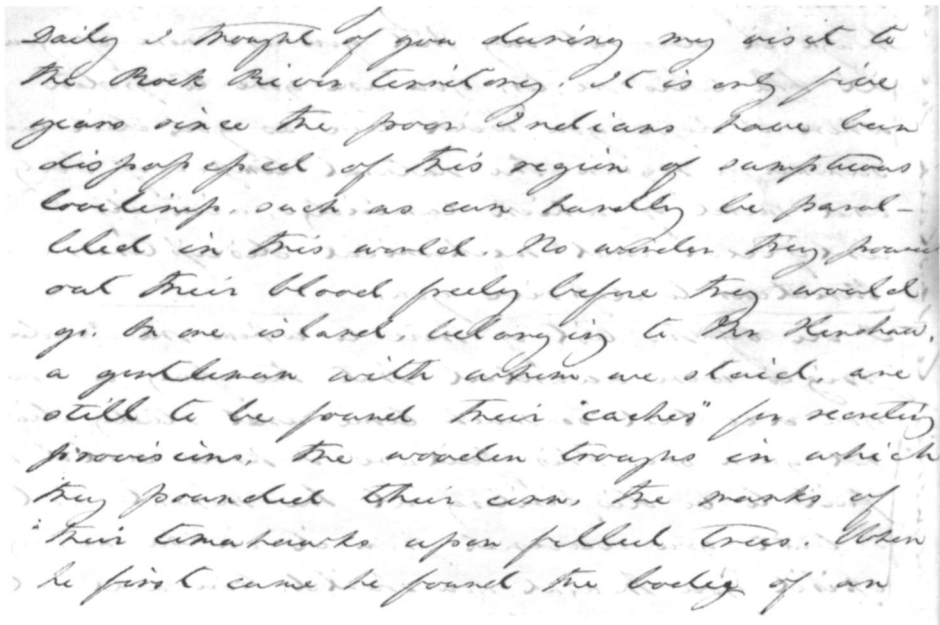 Daily I thought of you during my visit to
the Rock River territory. It is only five
years since the poor Indians have been
dispossessed of this region of sumptuous
loveliness, such as can hardly be paral-
leled in this world. No wonder they poured
out their blood freely before they would
go. On one island, belonging to Mr Hinshaw,
a gentleman with whom we staid, are
still to be found their "caches" for secreting
provisions, the wooden troughs in which
they pounded their corn, the marks of
their tomahawks upon felled trees. When
he first came he found the body of an